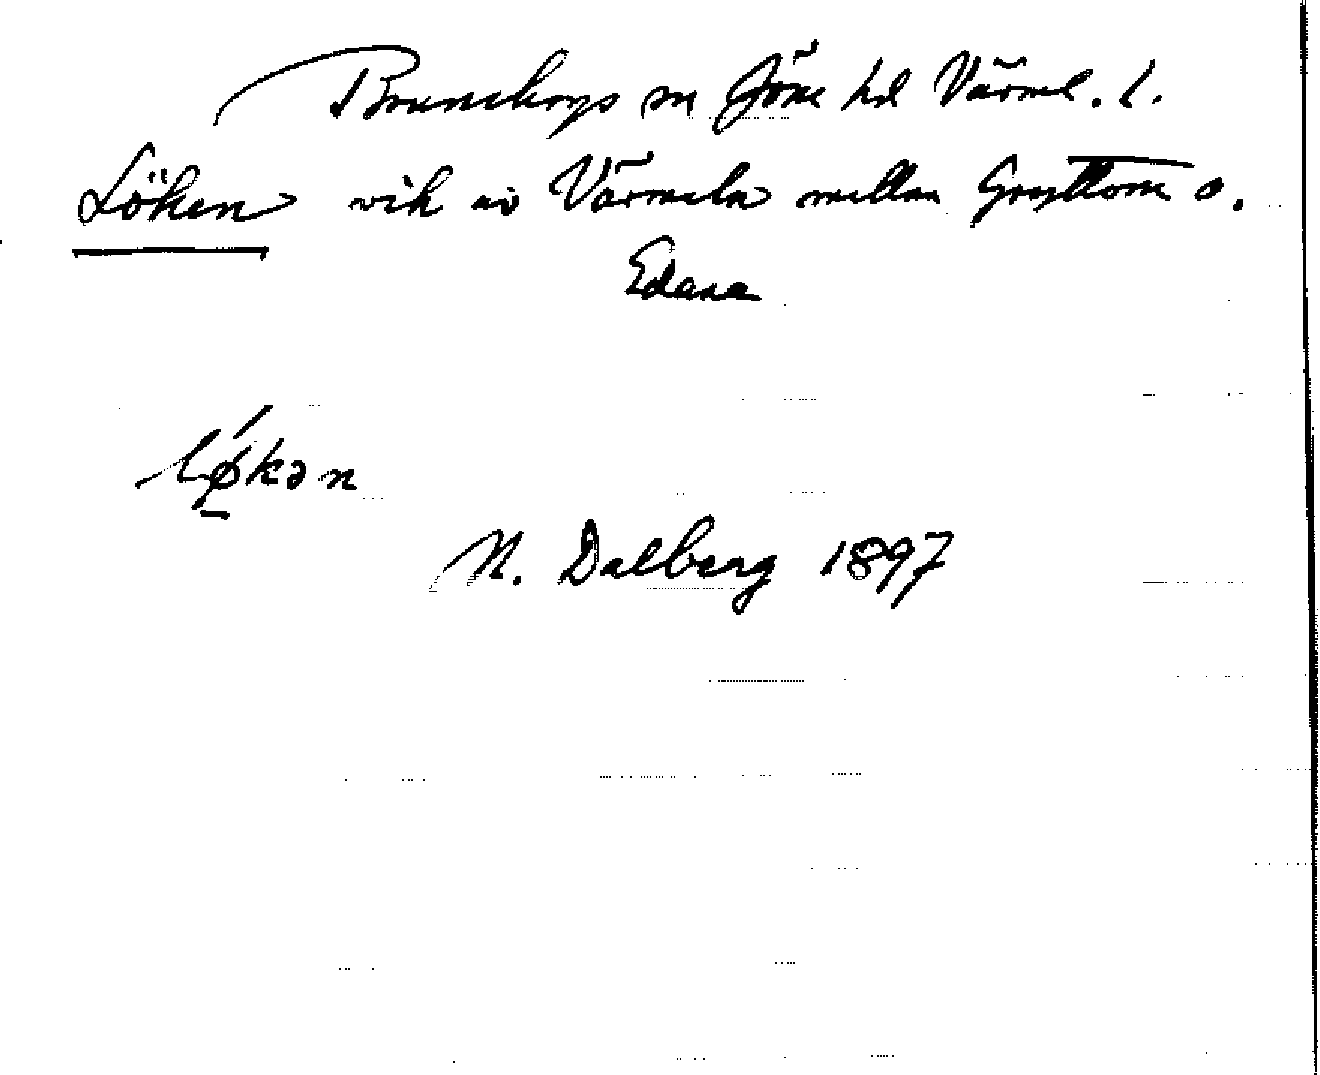 Brunskogs sn Jöne hd Värml. l.
Löken vik av Värmeln mellan Gryttom o.
Edane
løkən
N. Dalberg 1897